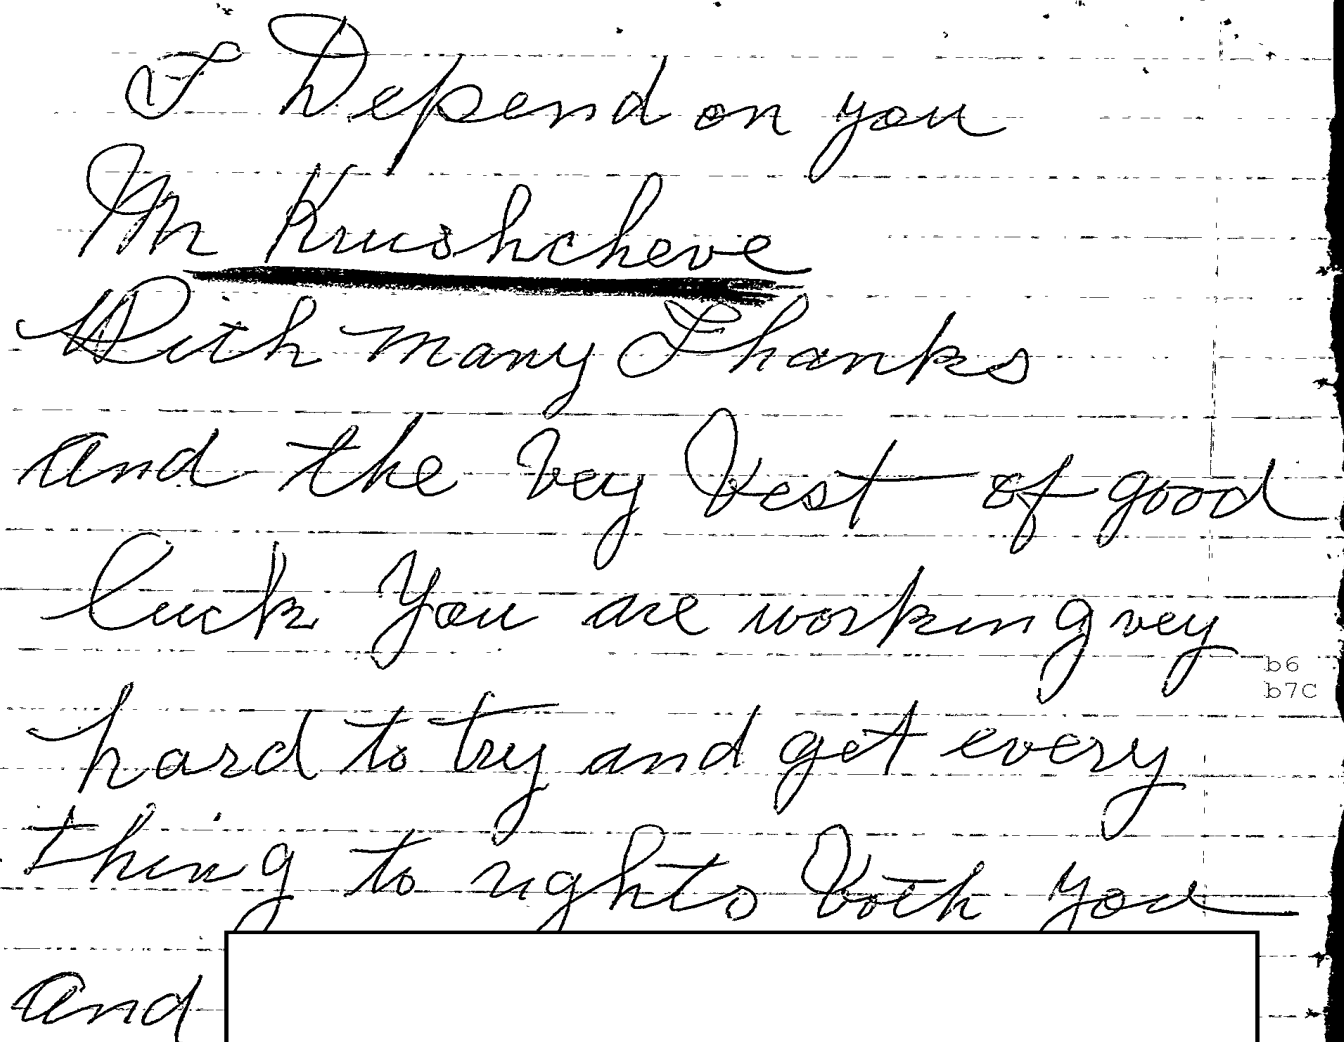 I Depend on you
Mr Krushcheve
With many Thanks
and the Vey Vest of good
luck You are working vey
b6
b7C
hard to try and get every
thing to rights Voth you
and